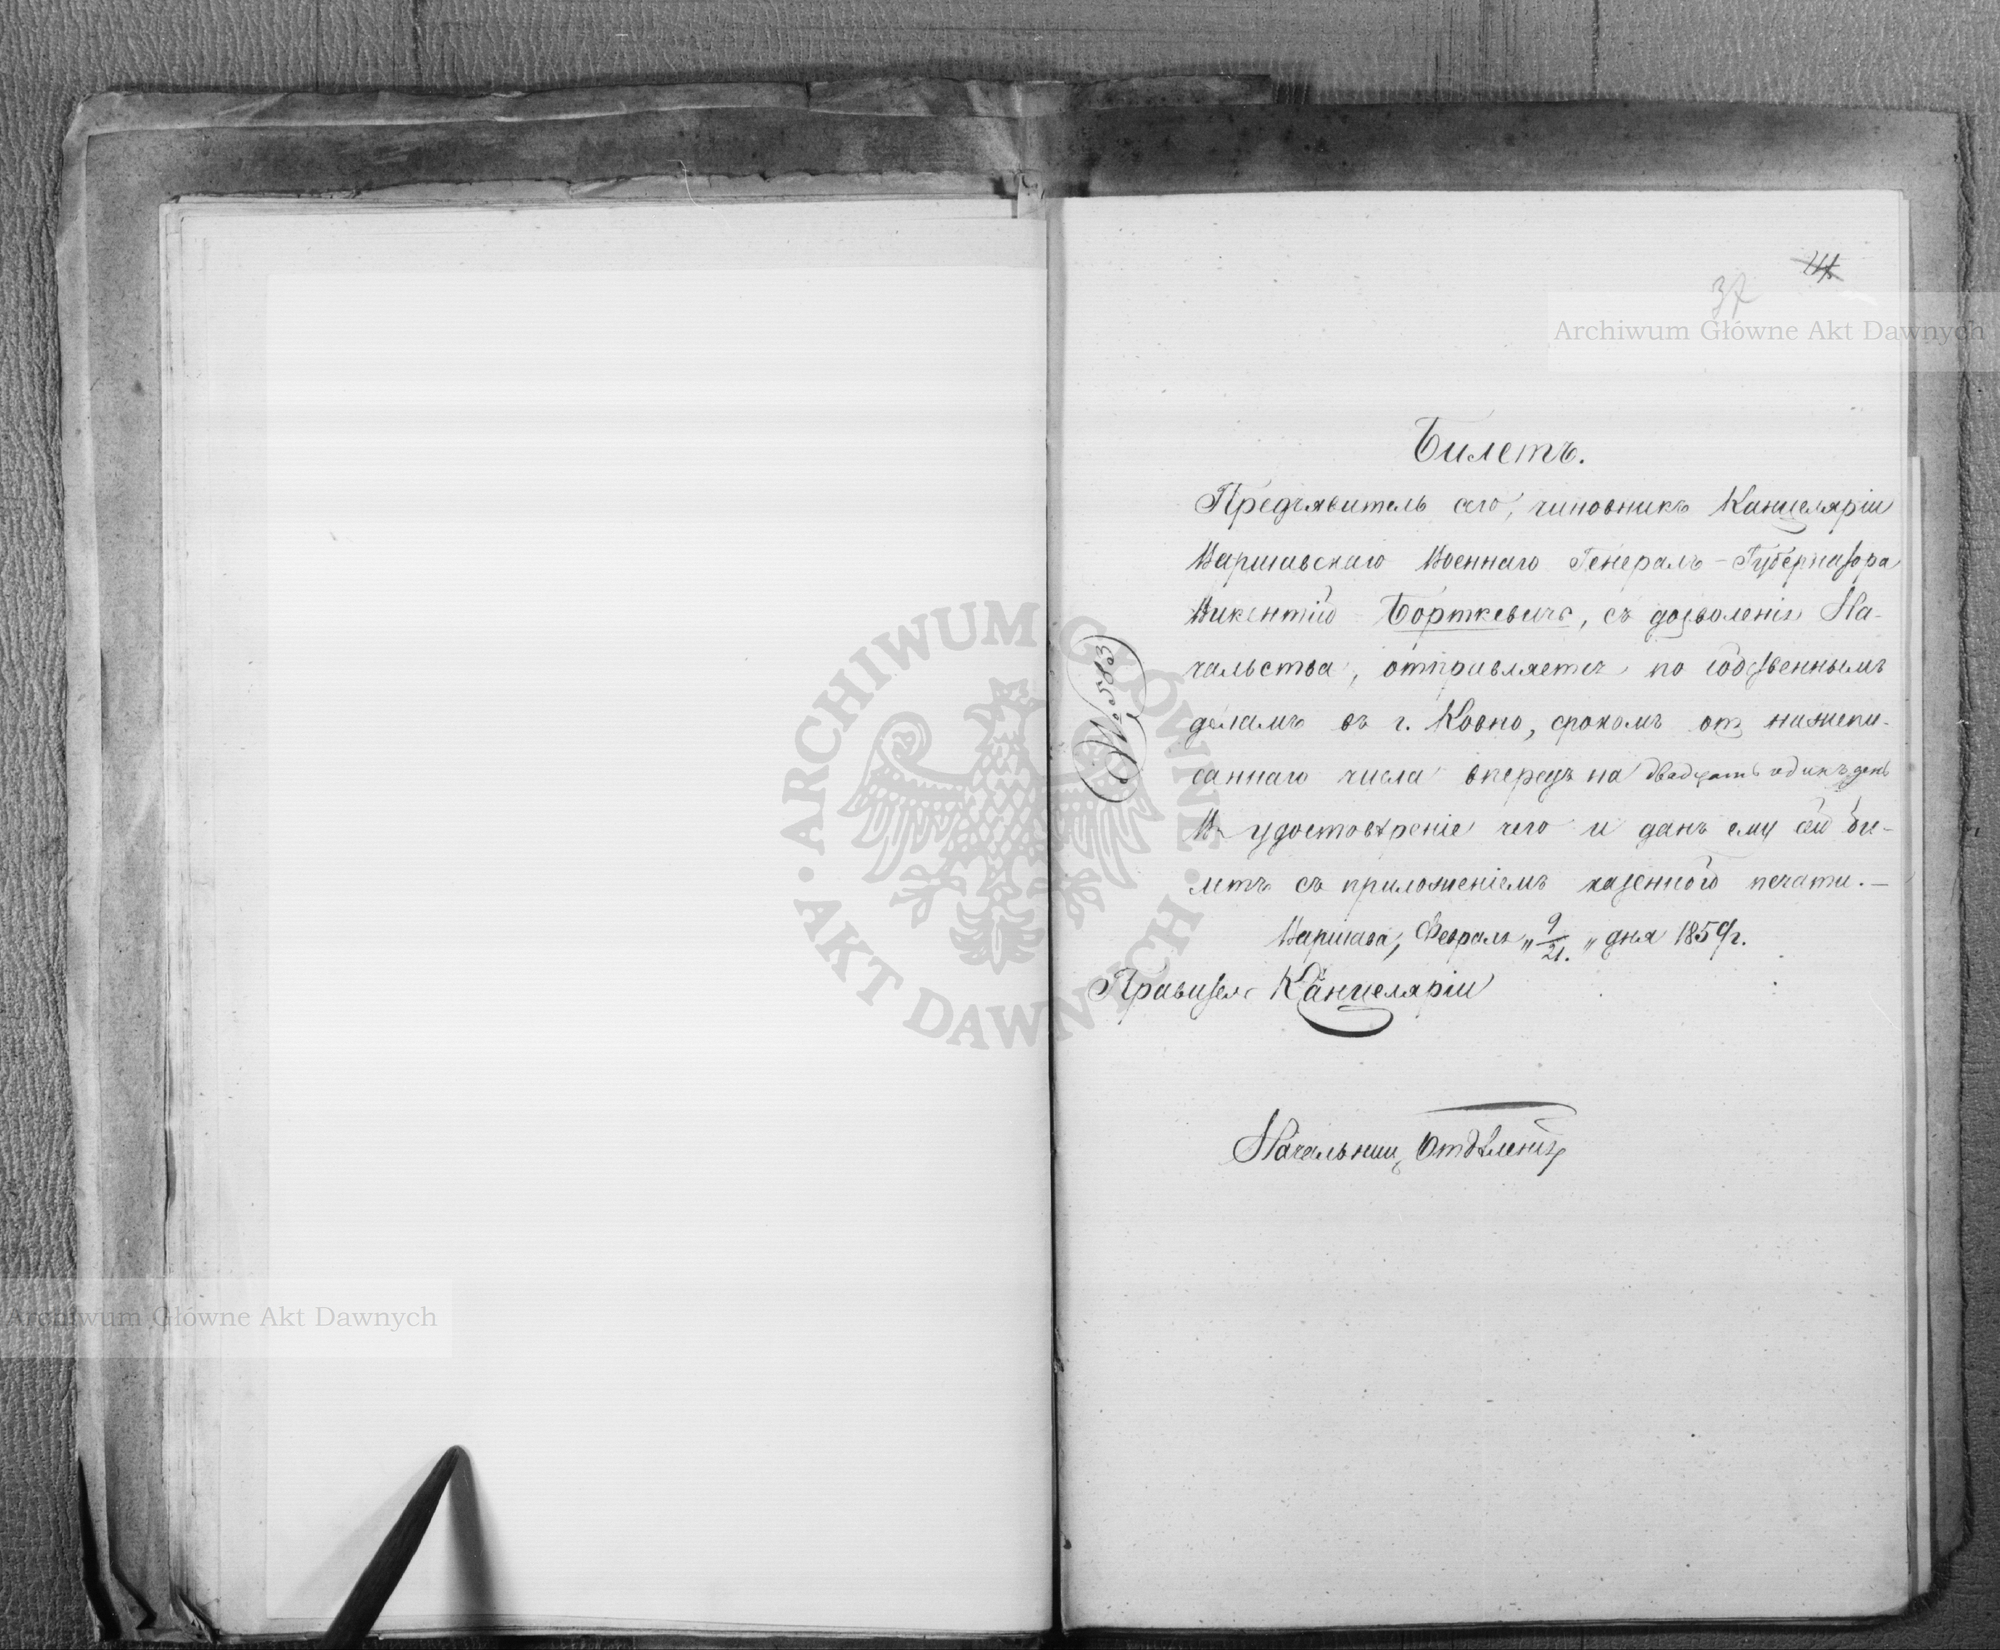 41
37
Archiwum Główne Akt Dawnych
Билетъ.
Предъявитель сего, чиновникъ Канцеляріи
Варшавскаго Военнаго Генералъ-Губернатора
Викентій Борткевичъ, съ дозволенія На-
чальства, отправляется по собственнымъ
деламъ въ г. Ковно, срокомъ отъ нижепи-
саннаго числа впередъ на двадцать одинъ день
Въ удостовѣреніе чего и данъ ему сей би-
летъ съ приложеніемъ казенной печати. —
Варшава, Февраля „ 9/21. „ дня 1859 г.
Правитель Канцеляріи
Начальникъ Отдѣленія
ARCHIWUM GŁÓWNE AKT DAWNYCH
Archiwum Główne Akt Dawnych